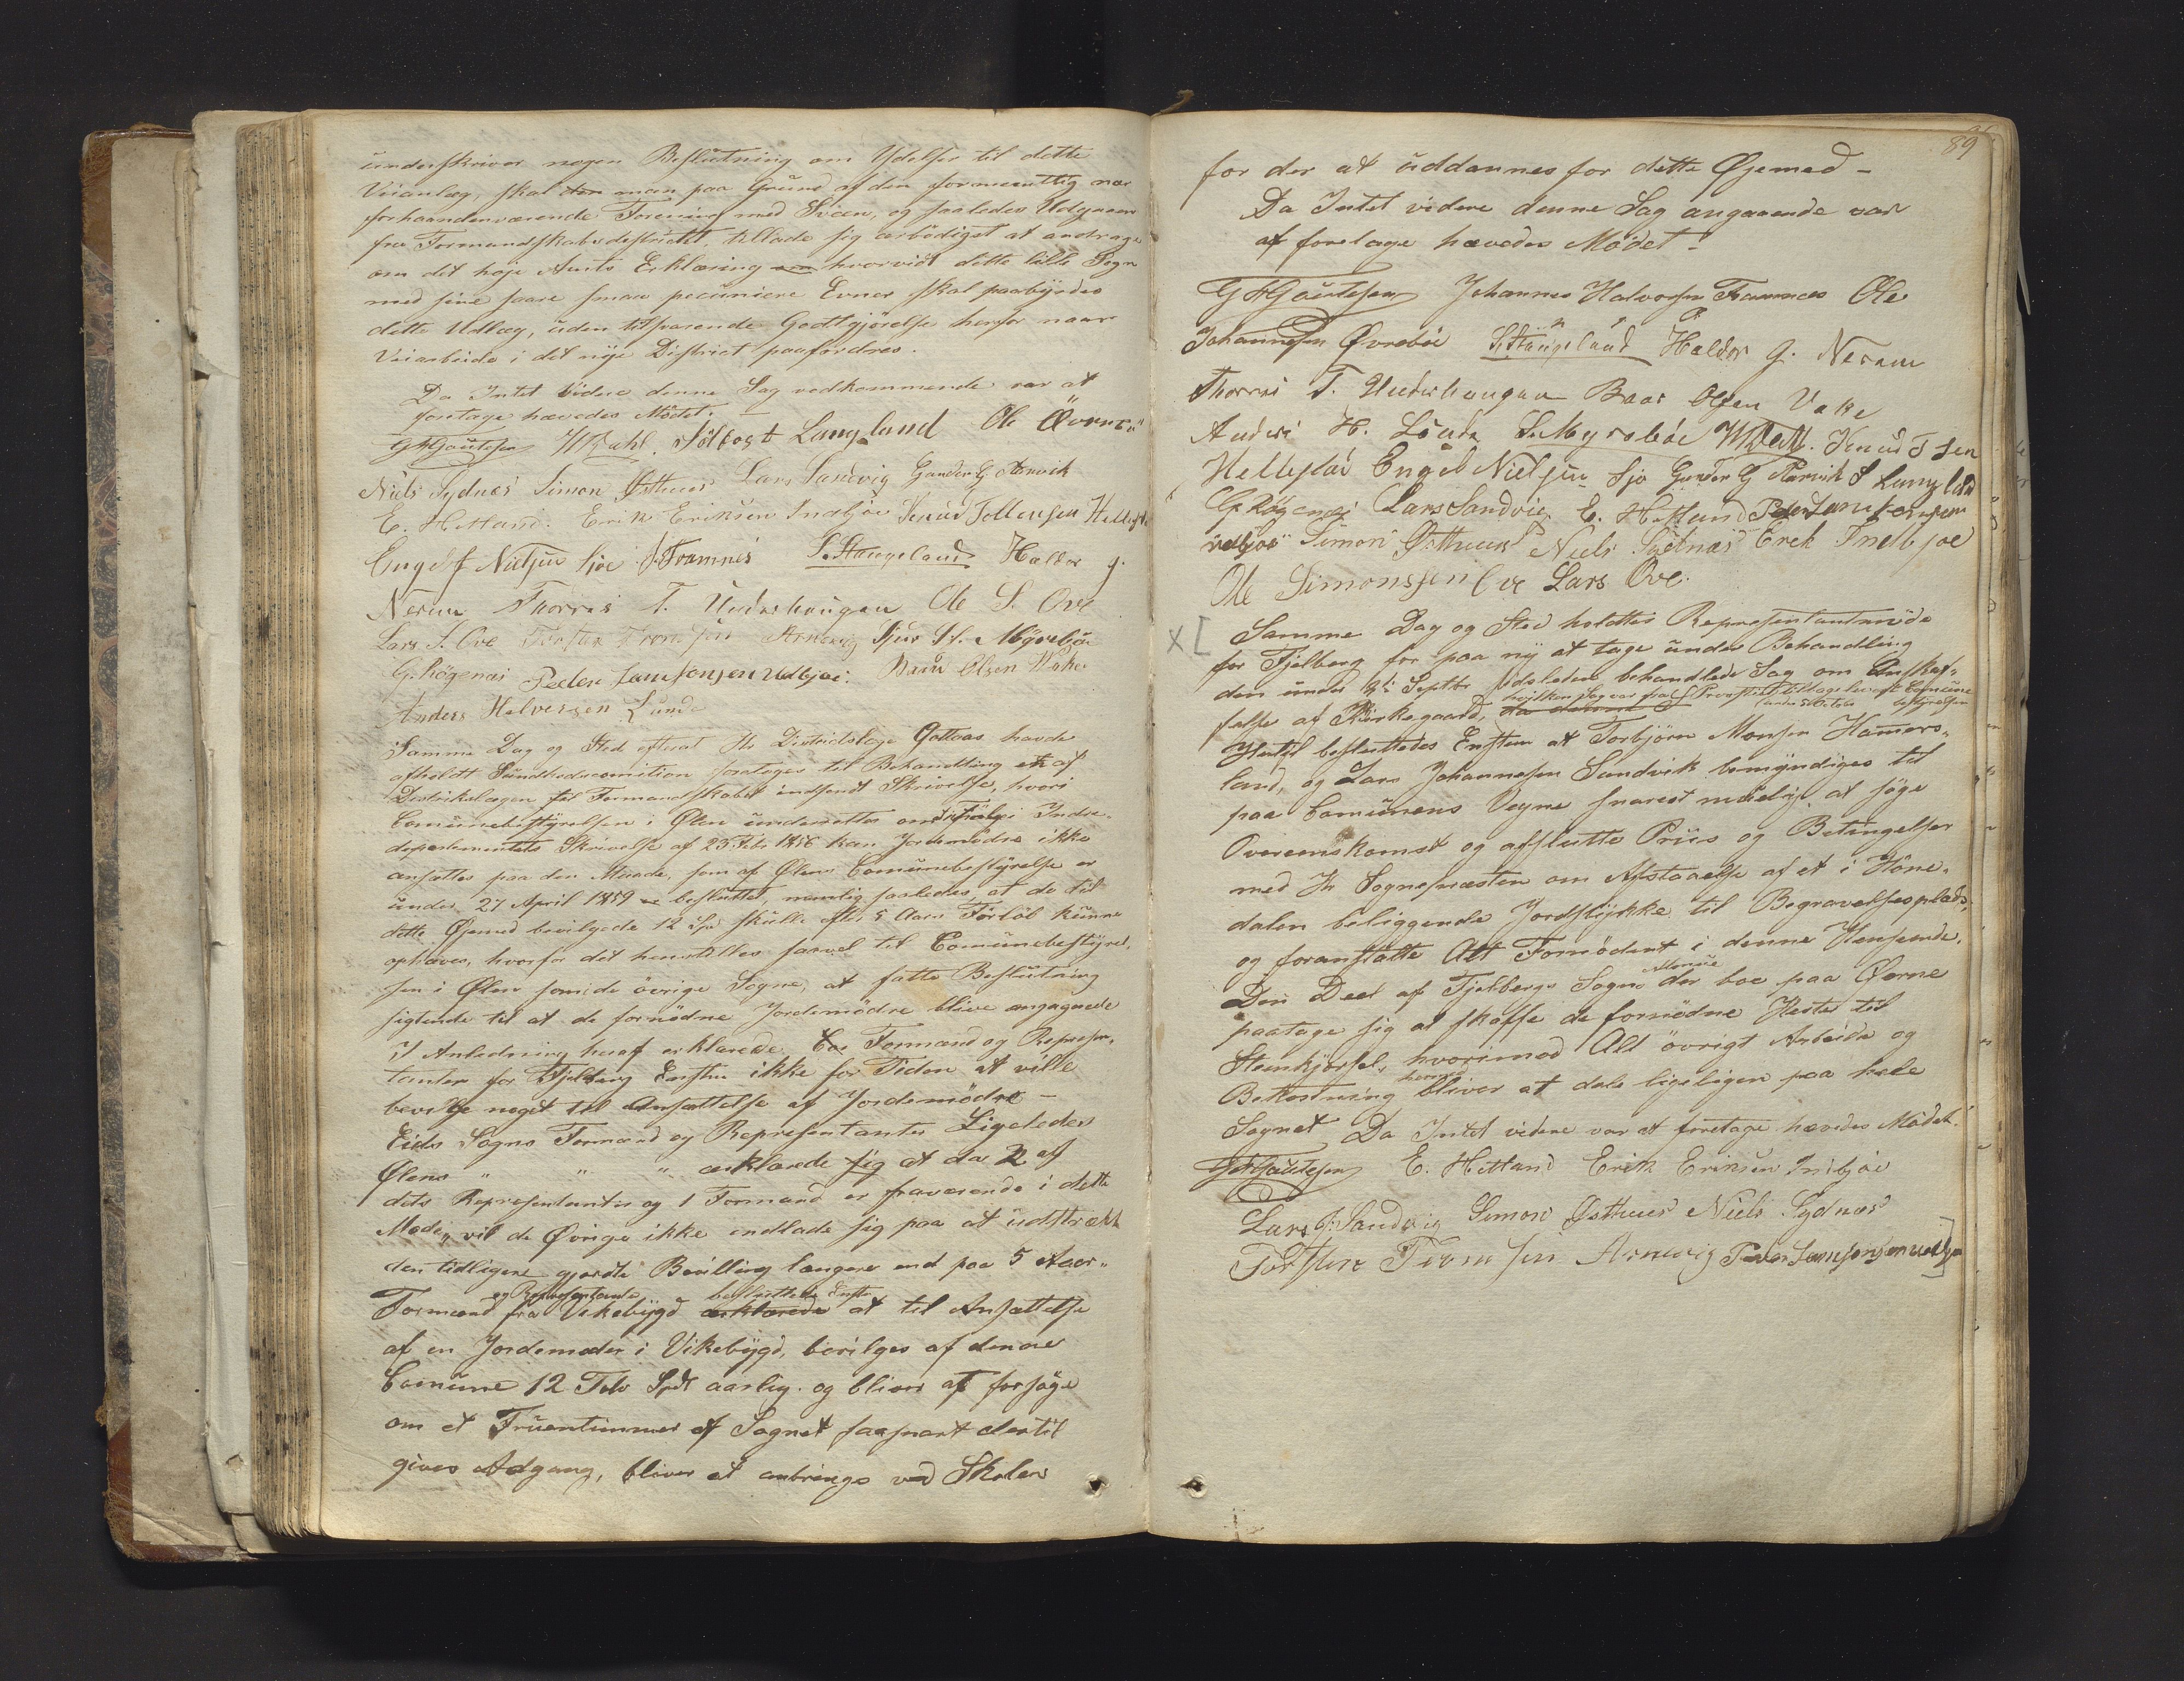 underskriver nogen Beslutning om Ydelser til dette
Veianlæg, skal man paa Grund af den formeentlig nær
forhaandenværende Forening med Sveen, og saaledes Udgaaen
fra Formandskabsdistrictet, tillade sig ærbødigst at andrage
om det høje Amts Erklæring hvorvidt dette lille Sogn
med sine saare smaa pecuniere Evner skal paabyrdes
dette Udlæg, uden tilsvarende Godtgjørelse herfor naar
Veiarbeide i det nye District paafordres.
Da Intet videre denne Sag vedkommende var at
foretage hævedes Mødet.
GHGoutesen Langeland Ole
Niels Sydnæs Simon Østhuus Lars Sandvig Gunder G. Arnvik
E. Hetland. Erik Eriksen Indbjoe Knud Tollevsen
Engel Nielsen Sjoe J. Framnes S. Stangeland Haldor g.
Nerem Thorres T. Underhaugen Ole S. Ove
Lars S. Ove Torsten Arnevig Sjur Myrebøe
G. Røgenæs Peder Samsonsen Udbjoe. Olsen
Anders Halversen Lunde
Samme Dag og Sted efterat Hr Districtslæge havde
afholdt Sundhedscomition foretoges til Behandling af
Districtslægen til Formandskabet indsendt Skrivelse, hvori
Comunebestyrelsen i Ølen underrettes om ifølge Indre-
departementets Skrivelse af 23 Feb. 1856 kan Jordemødre ikke
ansættes paa den Maade, som af Ølens Comunebestyrelse er
under 27 April 1859 besluttet, nemlig saaledes, at de til
dette Øjemed bevilgede 12 Spd skulle efter 5 Aars Forløb kunne
ophæves, hvorfor det henstilles saavel til Comunebestyrel-
sen i Ølen som i de øvrige Sogne, at fatte Beslutning
sigtende til at de fornødne Jordemødre blive engagerede
I Anledning heraf erklærede Formænd og Represen-
tanter for Fjelberg Enstem ikke for Tiden at ville
bevilge noget til Ansættelse af Jordemødre -
Eids Sogns Formænd og Representanter Ligeledes
Ølens " " " erklærede sig at da 2 af
dets Representanter og 1 Formand er fraværende i dette
Møde, vil de Øvrige ikke indlade sig paa at udstrække
den tidligere gjorte Bevilling længere end paa 5 Aar.
og Representante besluttede Enst
Formænd fra Vikebygd erklærede at til Ansættelse
af en Jordemoder i Vikebygd, bevilges af denne
Comune 12 Tolv Spd aarlig. og bliver at forsøge
om et Fruentimmer af Sognet saasnart dertil
gives Adgang, bliver at anbringe ved Skolen
89
for der at uddannes for dette Øjemed -
Da Intet videre denne Sag angaaende var
at foretage hævedes Mødet.
GHGoutesen Johannes Halvorsen Framnes Ole
Johannesen Øvrebøe S. Stangeland Haldor g. Nerem
Thorres T. Underhaugen Baar Olsen Vake
Anders H. Lunde S. Myrebøe Knud T sen
Engel Nielsen Sjo Gunder G Arnvik S Langeland
G. Røgenæs Lars Sandvig E. Hetland Peder Samsonsen
udbjoe Simon Østhuus Niels Sydnæs Erek Indbjoe
Ole Simonssen Ove Lars Ove.
x [ Samme Dag og Sted holdtes Representantmøde
for Fjelberg for paa ny at tage under Behandling
den under Septbr sidsleden behandlede Sag om Anskaf-
hvilken Sag var fra Provsti tilbageleveret Comune
bestyrelsen
felse af Kirkegaard,
Hertil besluttedes Enstem at Torbjørn Monsen Hamers-
land, og Lars Johannesen Sandvik bemyndiges til
paa Comunens Vegne snarest mueligt at søge
Overeenskomst og afslutte Priis og Betingelser
med Hr Sognepræsten om Afstaaelse af et i Høne-
dalen beliggende Jordstykke til Begravelsesplads,
og foranstalte Alt Fornødent i denne Henseende.
Den Deel af Fjelbergs Sogns der boe paa Øerne
paatage sig at skaffe de fornødne Heste til
Steenkjørsel, hvorimod Alt øvrigt Arbeide og
hermed
Bekostning bliver at dele ligeligen paa hele
Sognet Da Intet videre var at foretage hævedes Mødet.
GHGoutesen E. Hetland Erik Eriksen Indbjoe
Lars J. Sandvig Simon Østhuus Niels Sydnæs
Torsten Arnevig Peder Samsonsen udbjoe ]